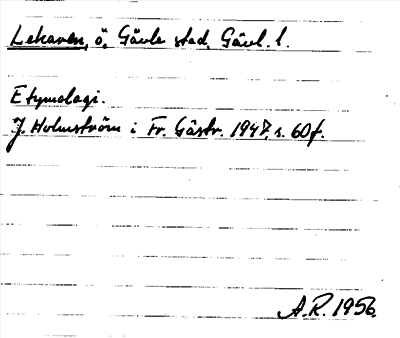 Lekaren, ö, Gävle stad, Gävl. l.
Etymologi.
J. Holmström i Fr. Gästr. 1947, s. 60f.
A.R. 1956.